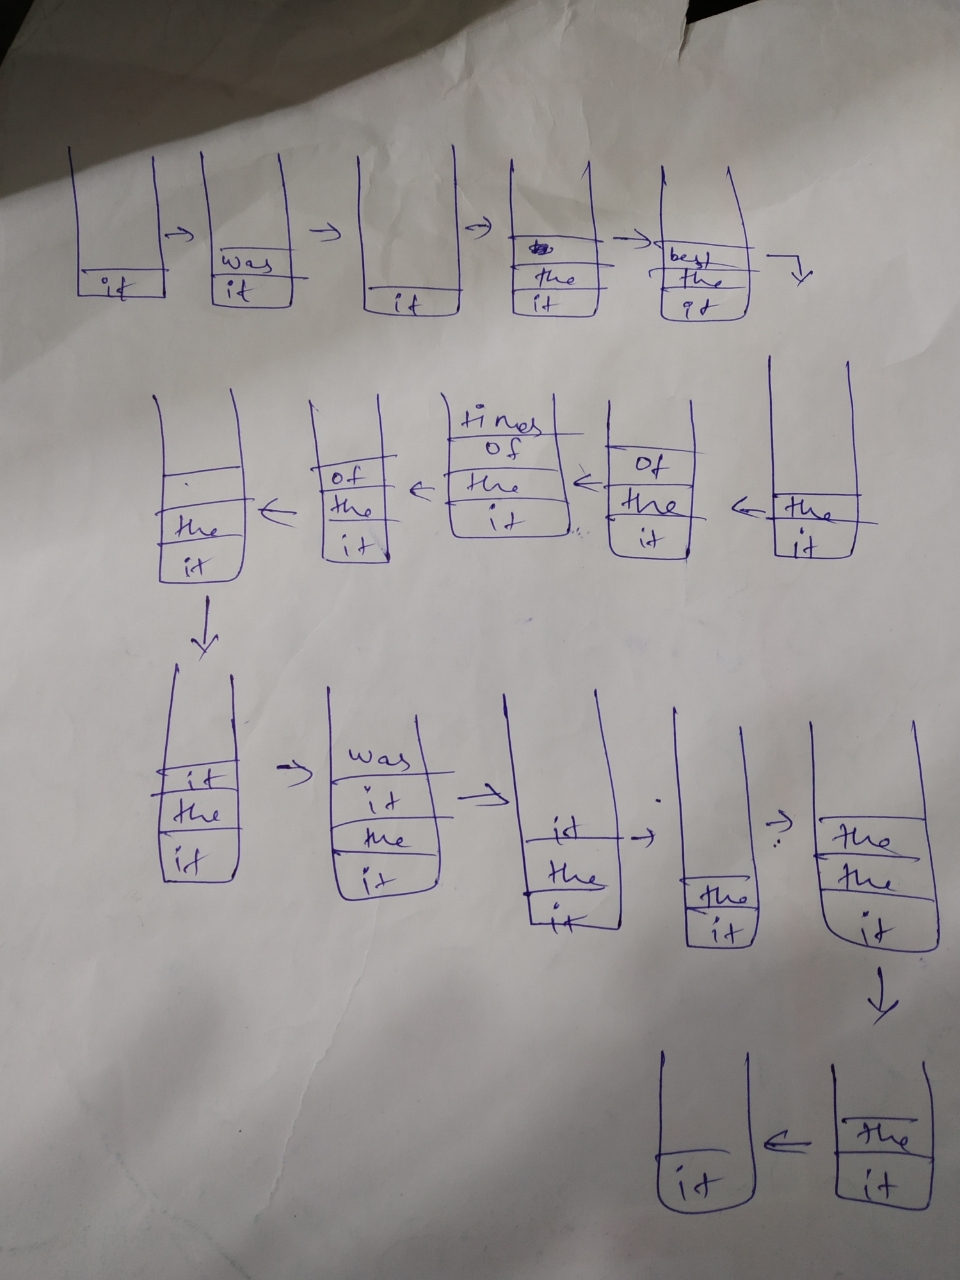 it
was
it
it
the
it
best
the
it
the
it
of
the
it
times
of
the
it
of
the
it
.
the
it
it
the
it
was
it
the
it
it
the
it
the
it
the
the
it
the
it
it